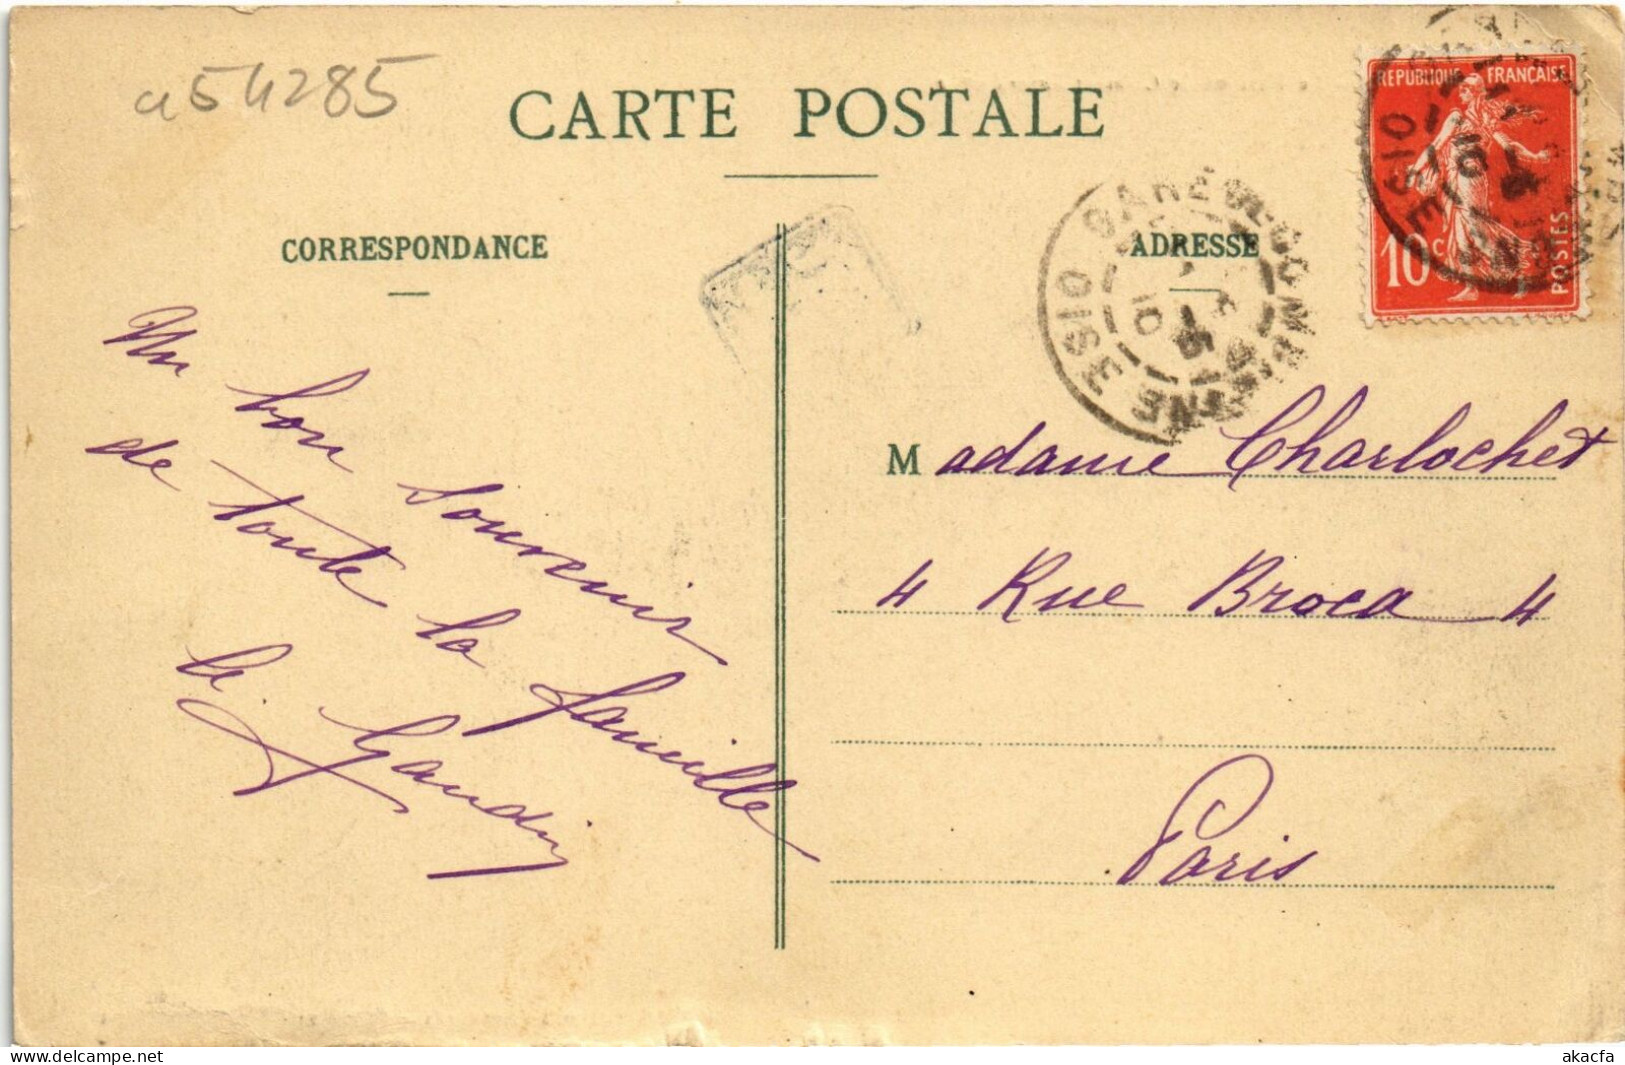 a54285
CARTE POSTALE
CORRESPONDANCE
ADRESSE
RÉPUBLIQUE FRANÇAISE
10 c
POSTES
GARE DE COMPIÈGNE
OISE
OISE
Un bon souvenir
de toute la famille
Gaudry
Madame Charlochet
4 Rue Broca 4
Paris
www.delcampe.net
akacfa